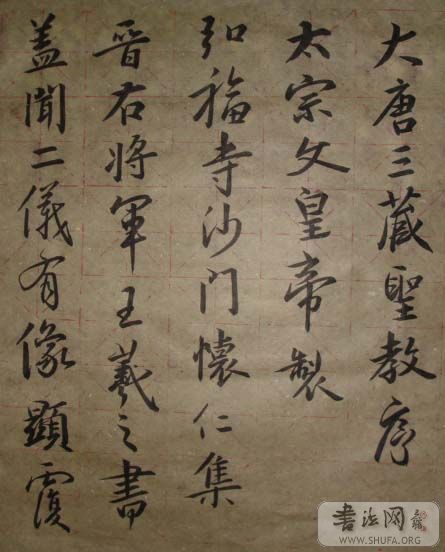 大唐三藏聖教序
太宗文皇帝製
弘福寺沙门懷仁集
晉右将軍王羲之書
盖聞二儀有像顯覆
书法网
WWW.SHUFA.ORG